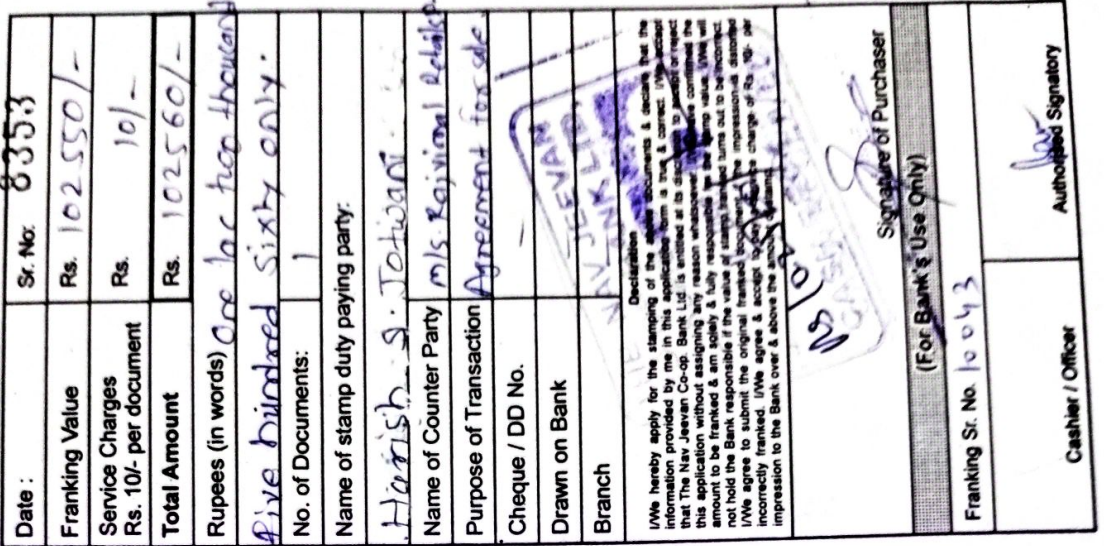 Date : Sr. No: 8353
Franking Value Rs. 102550/-
Service Charges
Rs. 10/- per document Rs. 10/-
Total Amount Rs. 102560/-
Rupees (in words) One lac two thousand
five hundred sixty only.
No. of Documents: 1
Name of stamp duty paying party:
Harish S. Jotwani
Name of Counter Party M/s. Rajvimal Retails
Purpose of Transaction Agreement for sale
Cheque / DD No. -
Drawn on Bank
Branch
NAV JEEVAN
BANK LTD.
Declaration
I/We hereby apply for the stamping of the above documents & declare that the
information provided by me in this application form is true & correct. I/We accept
that The Nav Jeevan Co-op. Bank Ltd. is entitled at its discretion to accept or reject
this application without assigning any reason whatsoever. I/We have confirmed the
amount to be franked & am solely & fully responsible for the franking value. I/We will
not hold the Bank responsible if the value of stamp franked turns out to be incorrect.
I/We agree to submit the original franked document if the impression is distorted
incorrectly franked. I/We agree & accept to pay charge of Rs. 10/- per
impression to the Bank over & above the amount
Signature of Purchaser
(For Bank's Use Only)
Franking Sr. No. 10043
Cashier / Officer Authorised Signatory